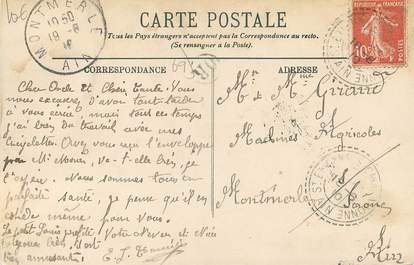 10€
MONTMERLE
10 50
19 -8
AIN
CARTE POSTALE
Tous les Pays étrangers n'acceptent pas la Correspondance au recto.
(Se renseigner à la Poste).
RÉPUBLIQUE FRANÇAISE
10c
POSTES
CORRESPONDANCE
69
ADRESSE
OR
Cher Oncle et Chère Tante. Vous
nous excuserez d'avoir tant tardé
à vous écrire, mais tout ces temps
j'ai bien du travail avec mes
bicyclettes. Avez vous reçu l'enveloppe
par Mr. va-t-elle bien, je
l'espère. Nous sommes tous en
parfaite santé, je pense qu'il en
est de même pour vous.
Le petit Louis profite
toujours bien, il est
bien amusant.
Votre Neveu et Nièce
Mr & Mme Girard
Machines Agricoles
Montmerle s/ Saône
Ain